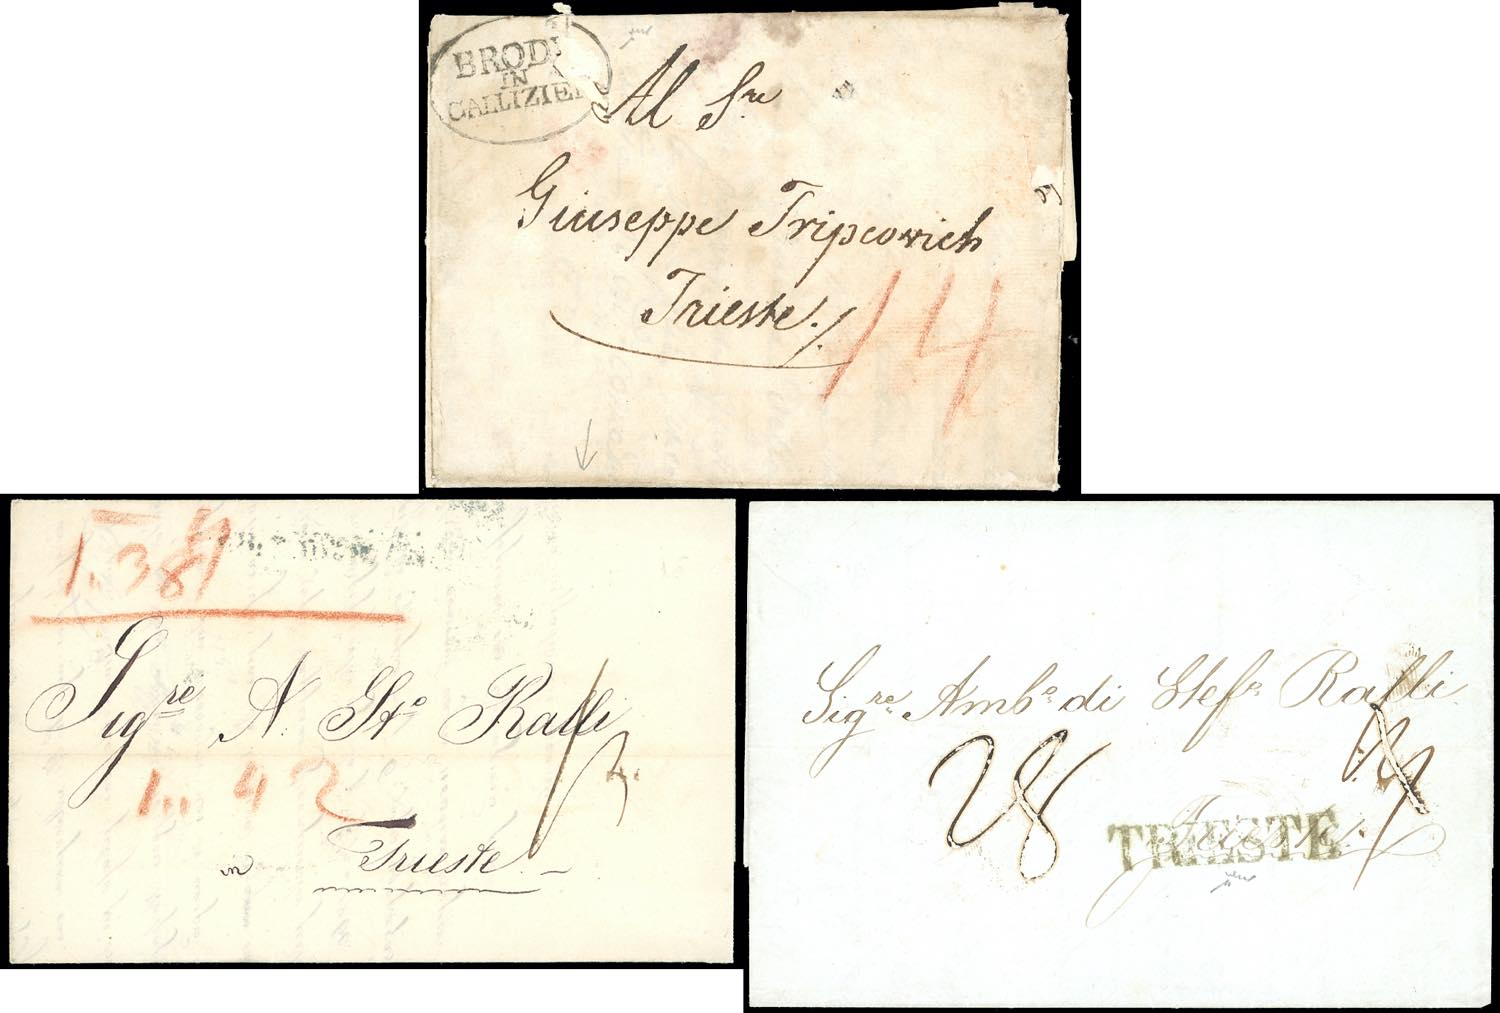 BRODI
IN
GALLIZIEN
Al Sre
Giuseppe Tripcovich
Trieste ./.
14
1,, 38
Sigre A. Sto Ralli
1,, 42
in Trieste
Sigre Ambo di Stefo Ralli
28
Trieste
TRIESTE